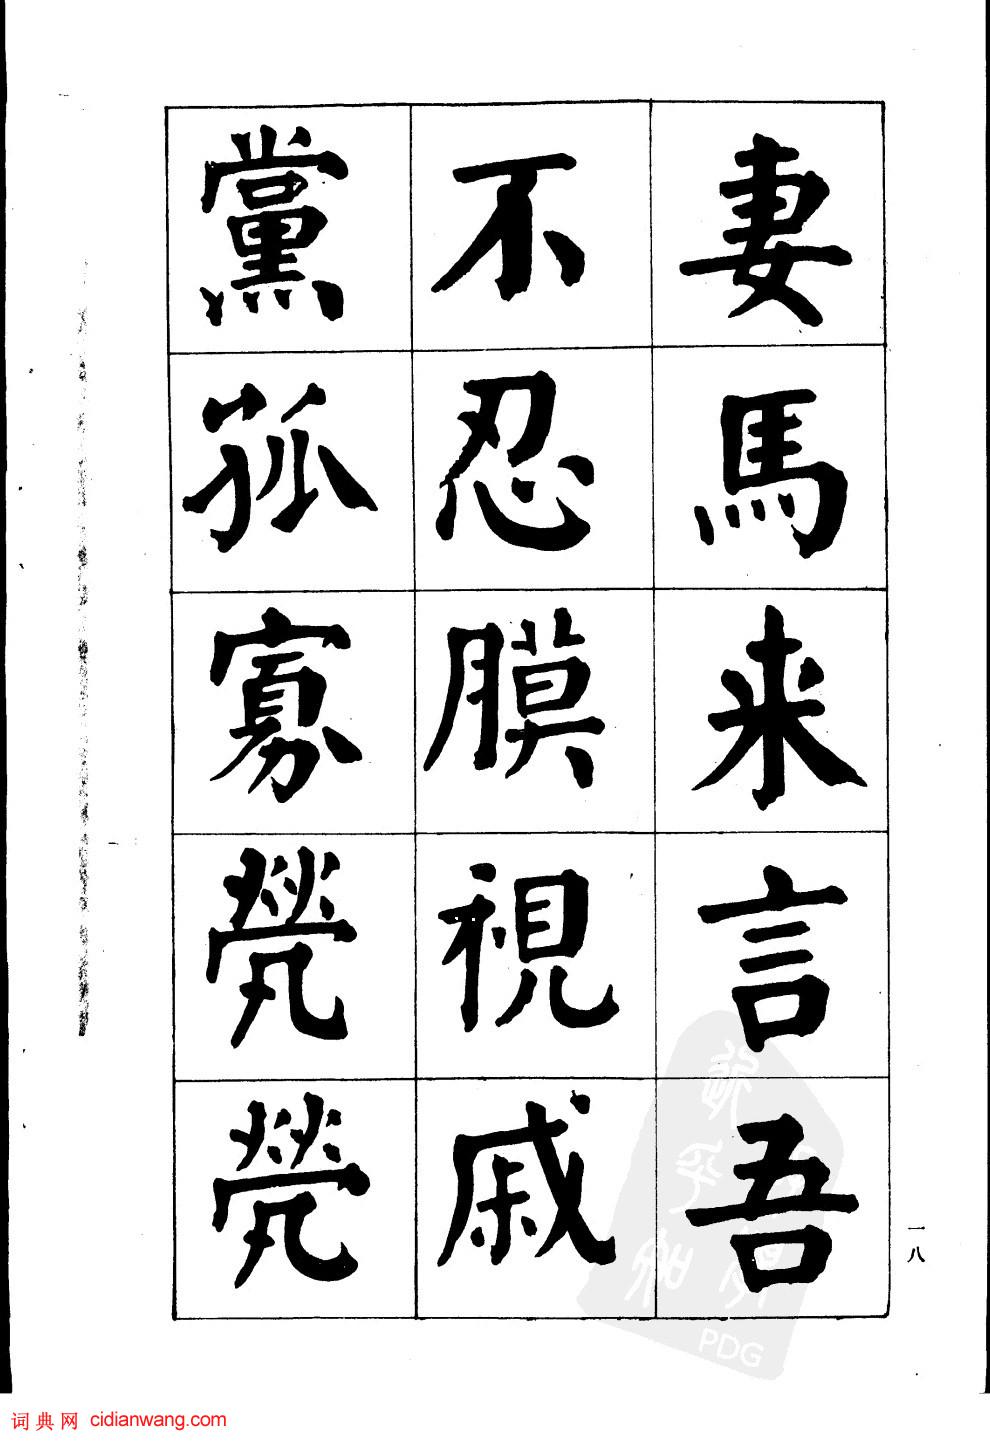 妻馬来言吾
不忍膜視戚
黨孤寡煢煢
一八
PDG
词典网 cidianwang.com